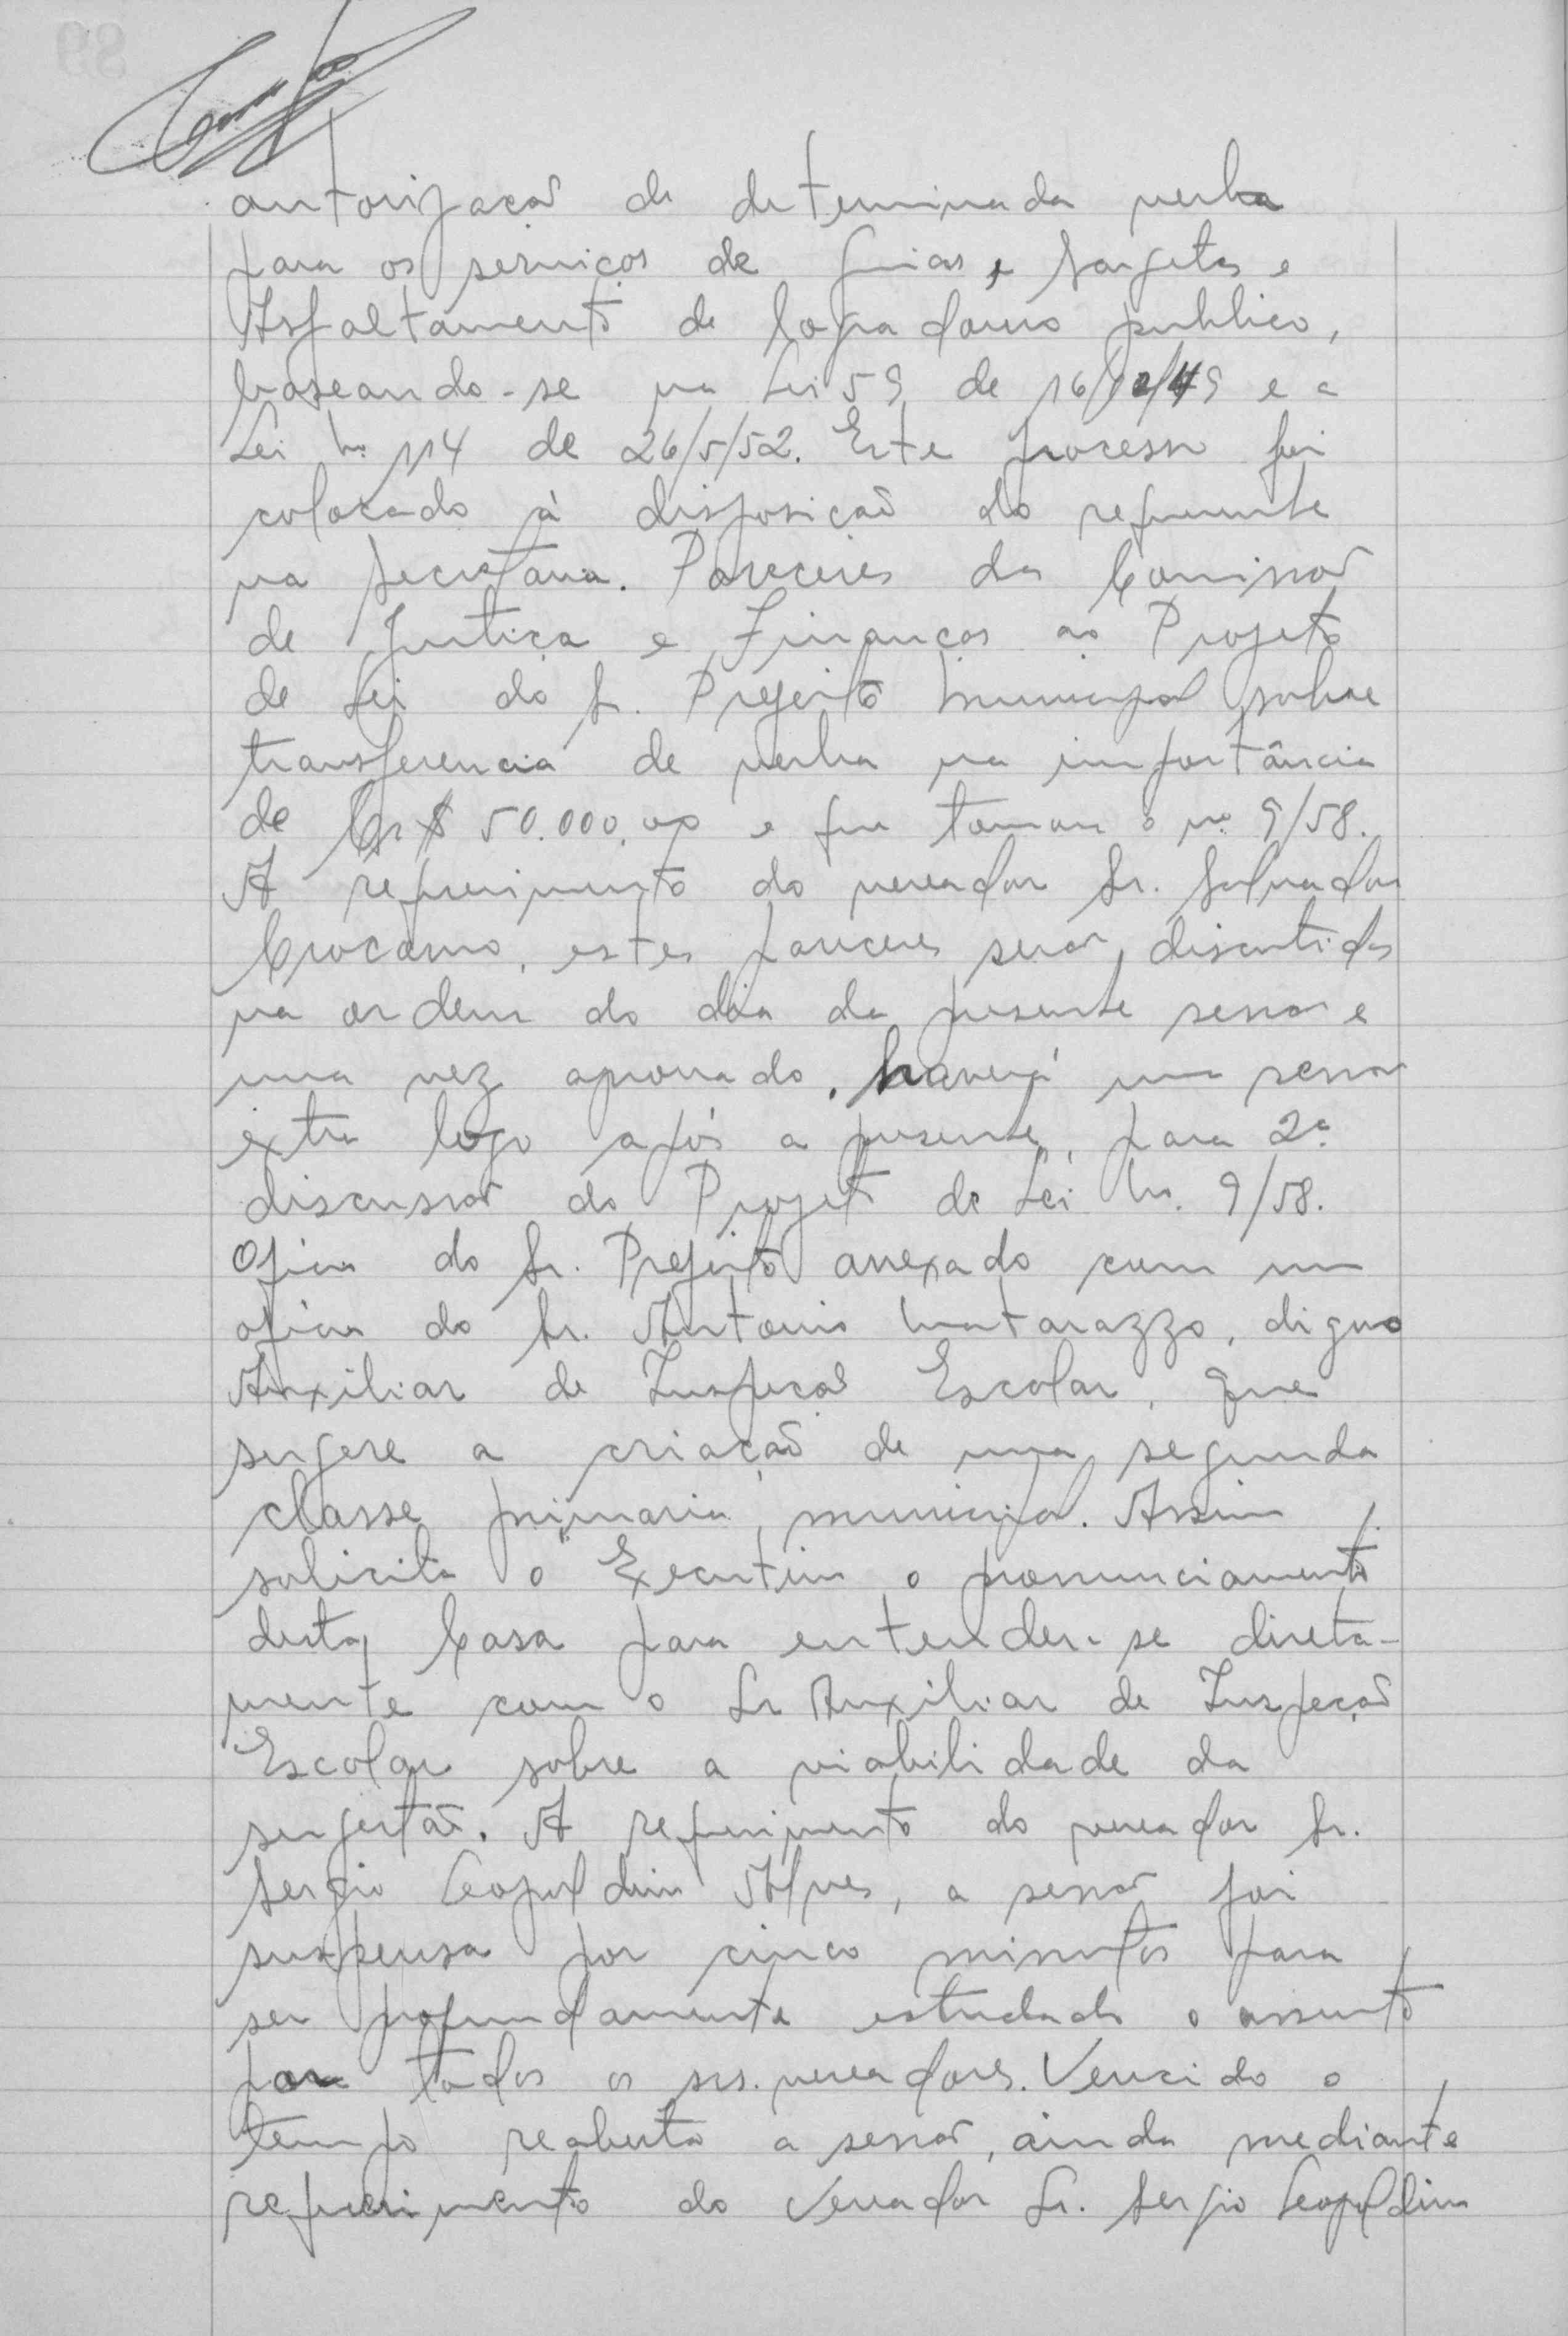 autorização de determinada verba
para os serviços de guias e sargetas e
Asfaltamento de logradouro publico,
baseando-se na Lei 59 de 16/12/49 e a
Lei no. 114 de 26/5/52. Este processo foi
colocado à disposição do requerente
na Secretaria. Pareceres da Comissão
de Justiça e Finanças ao Projeto
de Lei do Sr. Prefeito Municipal sobre
transferencia de verba na importância
de Cr$ 50.000,00 e que tomou o no. 9/58.
A requerimento do vereador Sr. Salvador
estes pareceres serão discutidos
na ordem do dia da presente sessão e
uma vez aprovado, haverá uma sessão
extra logo após a presente, para 2ª
discussão do Projeto de Lei no. 9/58.
Oficio do Sr. Prefeito anexado com um
oficio do Sr. Antonio Matarazzo, digno
Auxiliar de Inspeção Escolar, que
sugere a criação de uma segunda
classe primaria municipal. Assim
solicita o Executivo o pronunciamento
desta Casa para entender-se direta-
mente com o Sr Auxiliar de Inspeção
Escolar sobre a viabilidade da
sugestão. A requerimento do vereador Sr.
Sergio Leopoldino Alves, a sessão foi
suspensa por cinco minutos para
ser profundamente estudado o assunto
por todos os srs. vereadores. Vencido o
tempo reaberta a sessão, ainda mediante
requerimento do Vereador Sr. Sergio Leopoldino